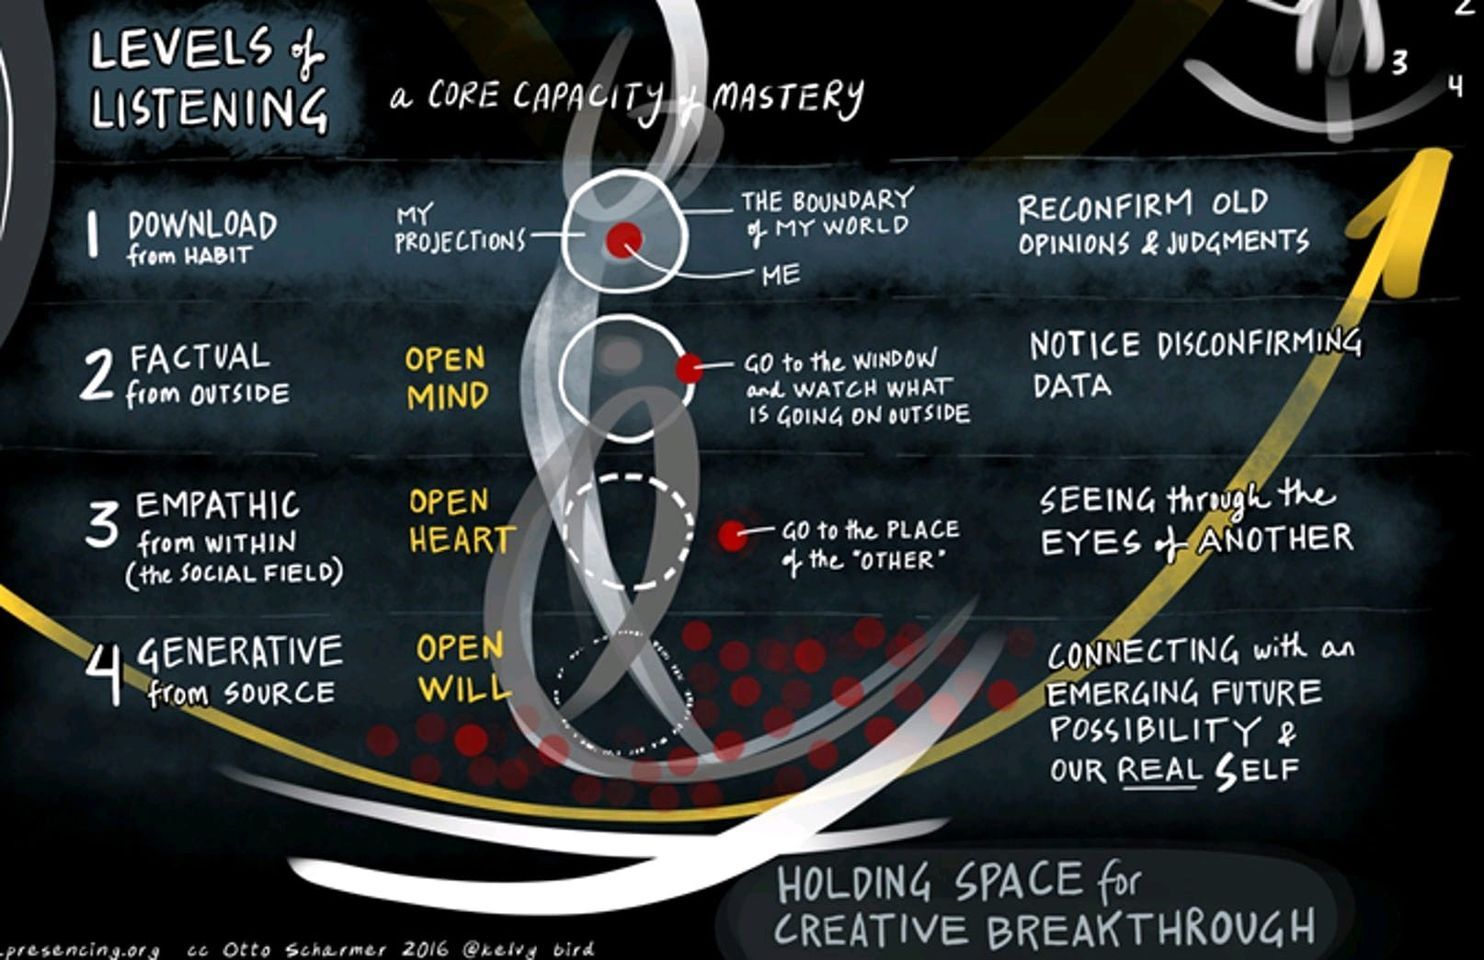 LEVELS of
LISTENING
a CORE CAPACITY of MASTERY
2
3
4
1 DOWNLOAD
from HABIT
MY
PROJECTIONS
THE BOUNDARY
of MY WORLD
ME
RECONFIRM OLD
OPINIONS & JUDGMENTS
2 FACTUAL
from OUTSIDE
OPEN
MIND
GO to the WINDOW
and WATCH WHAT
IS GOING ON OUTSIDE
NOTICE DISCONFIRMING
DATA
3 EMPATHIC
from WITHIN
(the SOCIAL FIELD)
OPEN
HEART
GO to the PLACE
of the "OTHER"
SEEING through the
EYES of ANOTHER
4 GENERATIVE
from SOURCE
OPEN
WILL
CONNECTING with an
EMERGING FUTURE
POSSIBILITY &
OUR REAL SELF
HOLDING SPACE for
CREATIVE BREAKTHROUGH
.presencing.org cc Otto Scharmer 2016 @kelvy bird